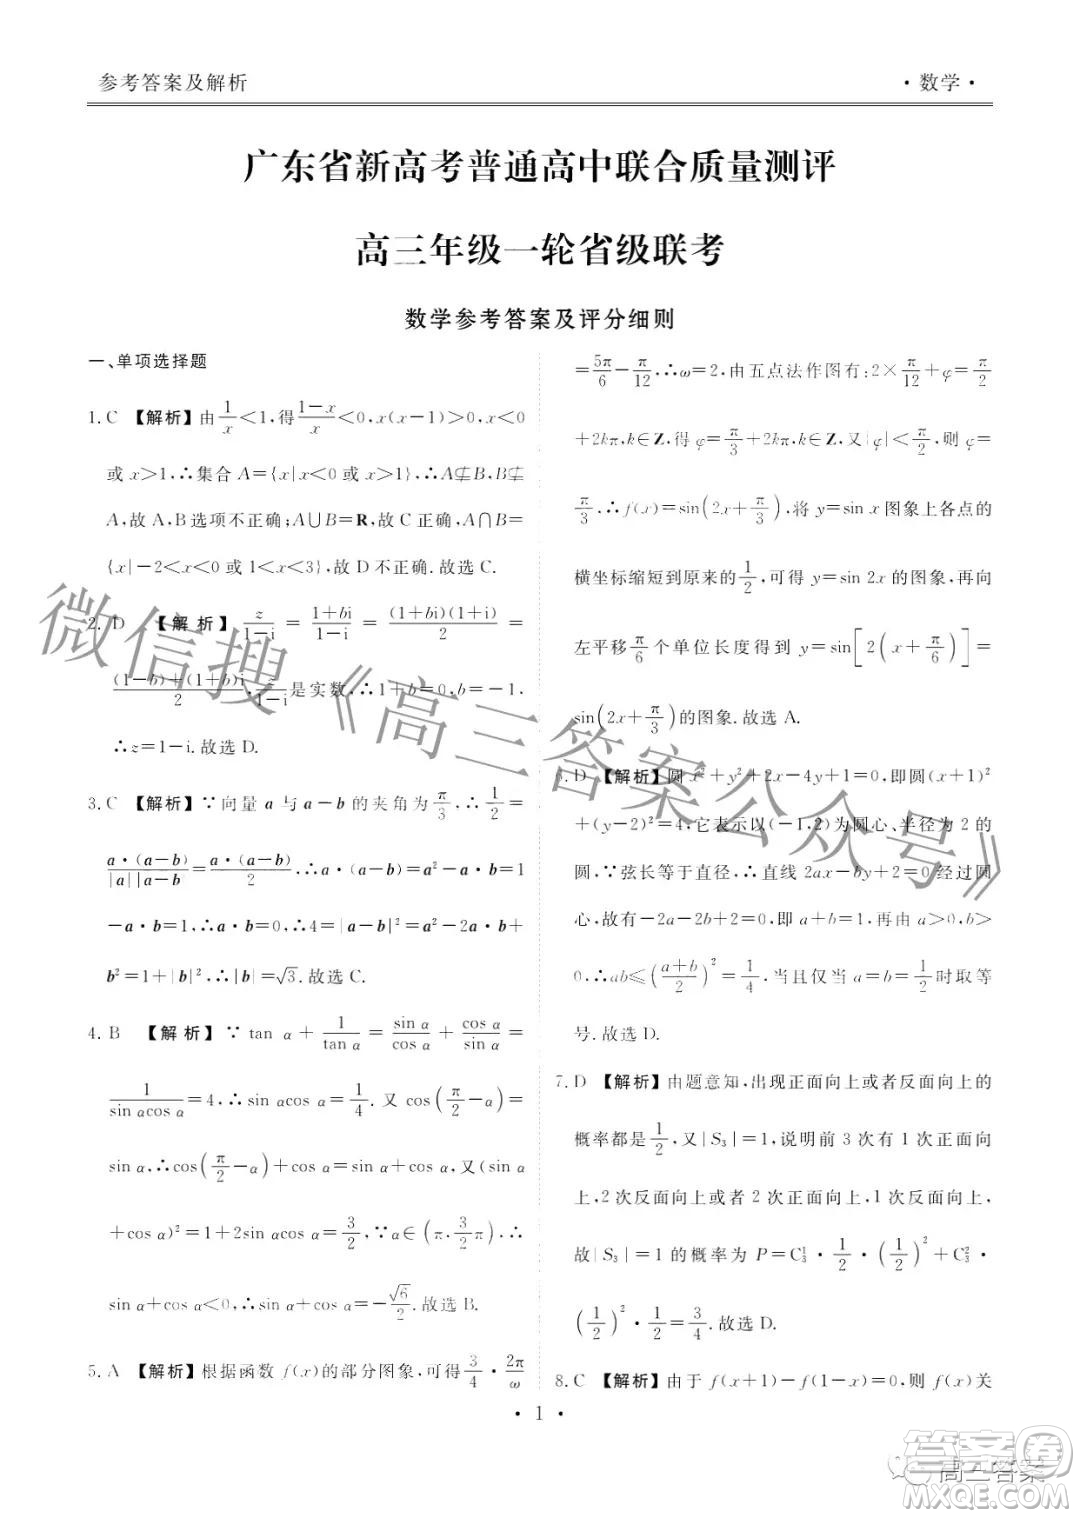 参考答案及解析
·数学·
广东省新高考普通高中联合质量测评
高三年级一轮省级联考
数学参考答案及评分细则
一、单项选择题
1. C 【解析】由1/x<1,得(1-x)/x<0,x(x-1)>0,x<0
或x>1,∴集合A={x|x<0或x>1},A⊈B,B⊈
A,故A,B选项不正确;A∪B=R,故C正确,A∩B=
{x|-2<x<0或1<x<3},故D不正确.故选C.
2. D 【解析】z/(1-i)=(1+bi)/(1-i)=(1+bi)(1+i)/2=
((1-b)+(1+b)i)/2,z/(1-i)是实数,∴1+b=0,b=-1.
∴z=1-i.故选D.
3. C 【解析】∵向量a与a-b的夹角为π/3,∴1/2=
a·(a-b)/(|a||a-b|)=a·(a-b)/2,∴a·(a-b)=a²-a·b=1
-a·b=1,∴a·b=0,∴4=|a-b|²=a²-2a·b+
b²=1+|b|²,∴|b|=√3.故选C.
4. B 【解析】∵tan α+1/tan α=sin α/cos α+cos α/sin α=
1/(sin αcos α)=4,∴sin αcos α=1/4.又cos(π/2-α)=
sin α,∴cos(π/2-α)+cos α=sin α+cos α,又(sin α
+cos α)²=1+2sin αcos α=3/2,∵α∈(π,3/2π),∴
sin α+cos α<0,∴sin α+cos α=-√6/2.故选B.
5. A 【解析】根据函数f(x)的部分图象,可得3/4·2π/ω
=5π/6-π/12,∴ω=2,由五点法作图有:2×π/12+φ=π/2
+2kπ,k∈Z,得φ=π/3+2kπ,k∈Z,又|φ|<π/2,则φ=
π/3.∴f(x)=sin(2x+π/3),将y=sin x图象上各点的
横坐标缩短到原来的1/2,可得y=sin 2x的图象,再向
左平移π/6个单位长度得到y=sin[2(x+π/6)]=
sin(2x+π/3)的图象.故选A.
6. D 【解析】圆x²+y²+2x-4y+1=0,即圆(x+1)²
+(y-2)²=4,它表示以(-1,2)为圆心、半径为2的
圆,∵弦长等于直径,∴直线2ax-by+2=0经过圆
心,故有-2a-2b+2=0,即a+b=1,再由a>0,b>
0,∴ab≤((a+b)/2)²=1/4,当且仅当a=b=1/2时取等
号.故选D.
7. D 【解析】由题意知,出现正面向上或者反面向上的
概率都是1/2,又|S₃|=1,说明前3次有1次正面向
上,2次反面向上或者2次正面向上,1次反面向上,
故|S₃|=1的概率为P=C₃¹·1/2·(1/2)²+C₃²·
(1/2)²·1/2=3/4.故选D.
8. C 【解析】由于f(x+1)-f(1-x)=0,则f(x)关
·1·
微信搜《高三答案公众号》
高三答案
答案圈
MXQE.COM